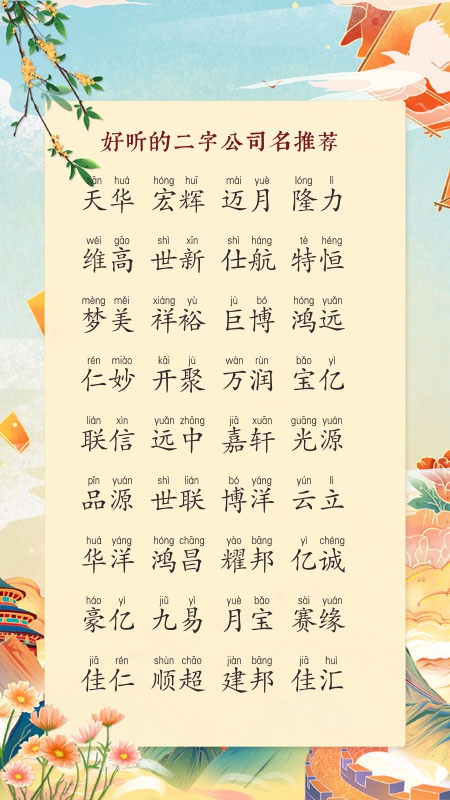 好听的二字公司名推荐
tiān huá hóng huī mài yuè lóng lì
天华 宏辉 迈月 隆力
wéi gāo shì xīn shì háng tè héng
维高 世新 仕航 特恒
mèng měi xiáng yù jù bó hóng yuǎn
梦美 祥裕 巨博 鸿远
rén miào kāi jù wàn rùn bǎo yì
仁妙 开聚 万润 宝亿
lián xìn yuǎn zhōng jiā xuān guāng yuán
联信 远中 嘉轩 光源
pǐn yuán shì lián bó yáng yún lì
品源 世联 博洋 云立
huá yáng hóng chāng yào bāng yì chéng
华洋 鸿昌 耀邦 亿诚
háo yì jiǔ yì yuè bǎo sài yuán
豪亿 九易 月宝 赛缘
jiā rén shùn chāo jiàn bāng jiā huì
佳仁 顺超 建邦 佳汇